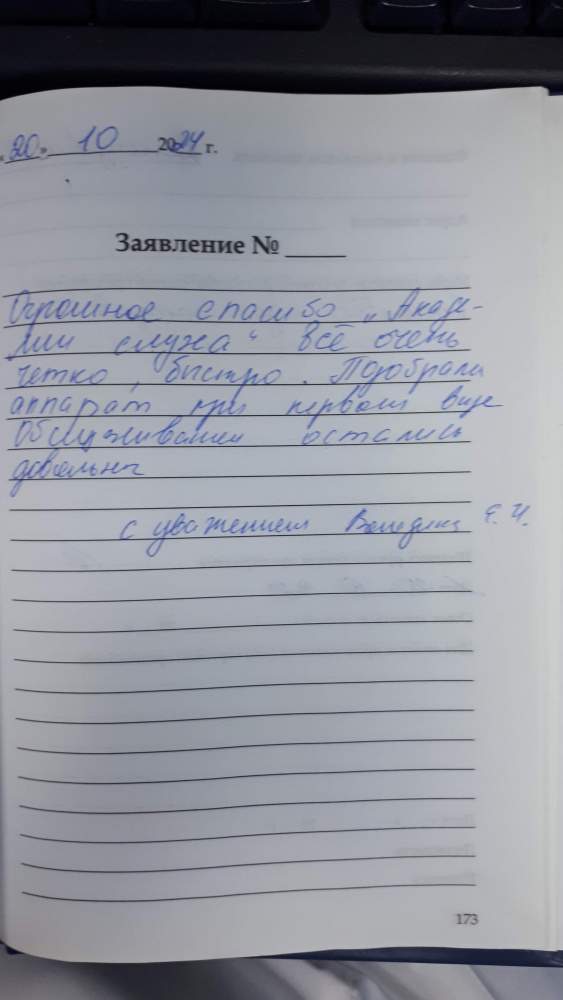 «20» 10 2024 г.
Заявление № ____
Огромное спасибо „Акаде-
мии слуха“ всё очень
четко, быстро. Подобрали
аппарат при первом визе
Обслуживанием остались
довольны
с уважением Е. И.
173